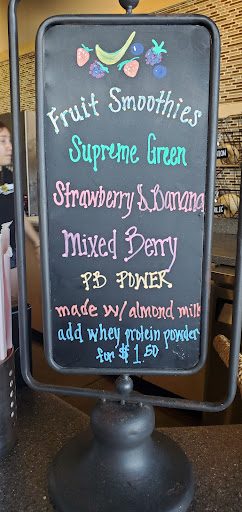 Fruit Smoothies
Supreme Green
Strawberry & Banana
Mixed Berry
PB POWER
made w/ almond milk
add whey protein powder
for $1.50